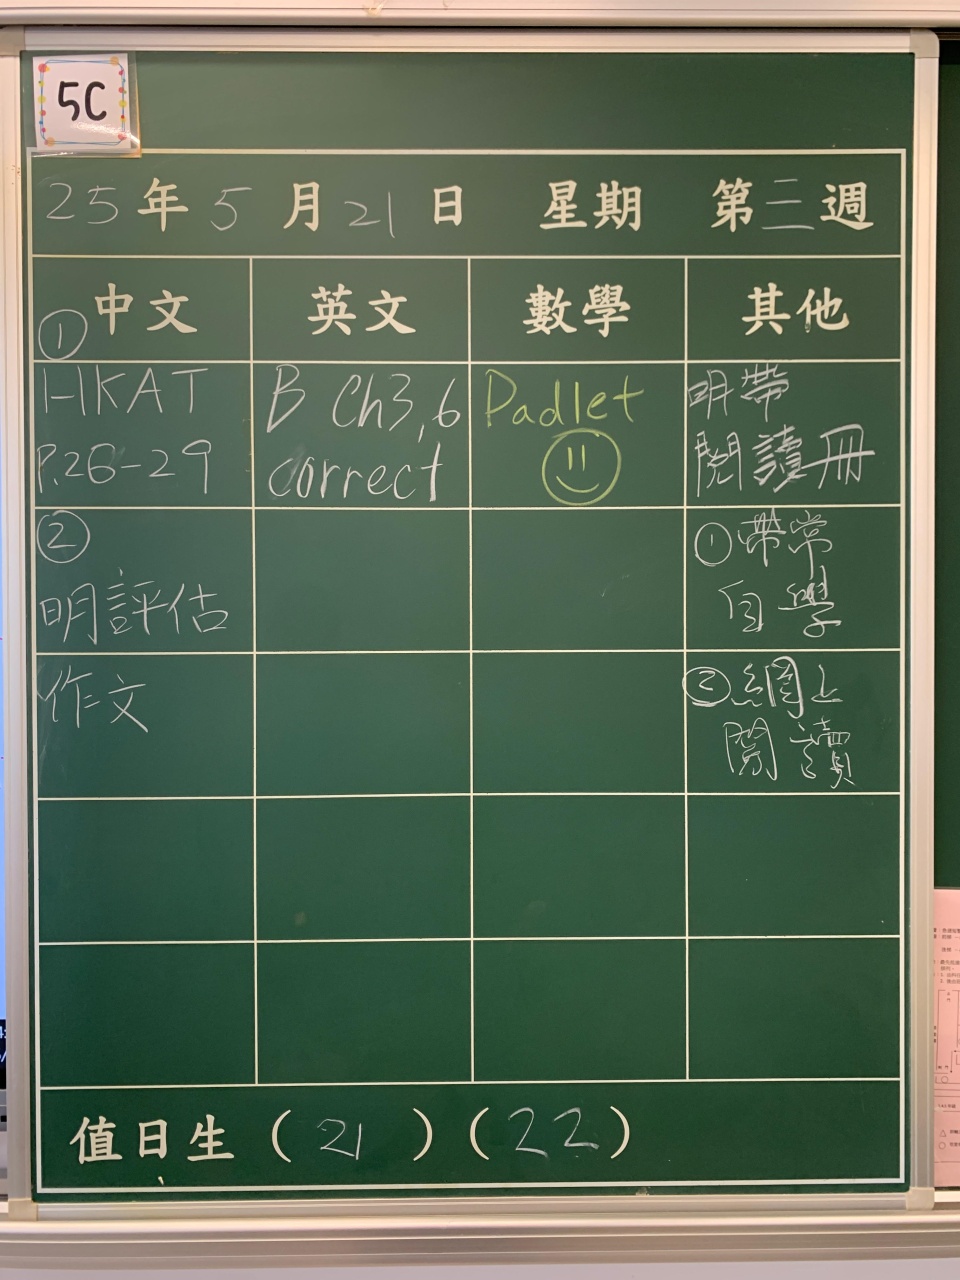 5C
25年5月21日 星期 第三週
中文 英文 數學 其他
①
HKAT
P.26-29
B Ch3,6
correct
Padlet
明帶
閱讀冊
②
明評估
①帶常
自學
作文
②網上
閱讀
值日生(21)(22)